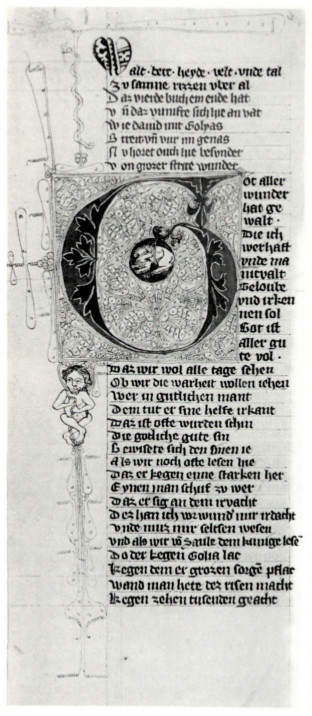 alt · berc · heyde · velt · vnde tal
Zv samne vber al
Daz vierde buch ein ende hat
Vñ daz vumfte sich hie an vat
Wie dauid mit Golyas
Streit vñ vur im genas
Nv horet ouch hie besvnder
Von grozer strite wunder
Got aller
wunder
hat ge
walt ·
Die ich
werhaft
vnde ma
nicvalt
Geloube
vnd irken
nen sol
Got ist
aller gu
te vol ·
Daz wir wol alle tage sehen
Ob wir die warheit wollen iehen
Wer in gutlichen mant
Dem tut er sine helfe irkant
Daz ist ofte worden schin
Die gotliche gute sin
Bewisete sich den sinen ie
Als wir noch ofte lesen hie
Daz er kegen eyme starken her
Eynen man schuf zv wer
Daz er sig an dem irvacht
Des han ich vor wund mir irdacht
Vnde muz mir seltsen wesen
Vnd als wir vō Saule dem kunige lesē
Do der kegen Golia lac
Kegen dem er grozen sorgē pflac
Wand man hete des risen macht
Kegen zehen tusenden geacht